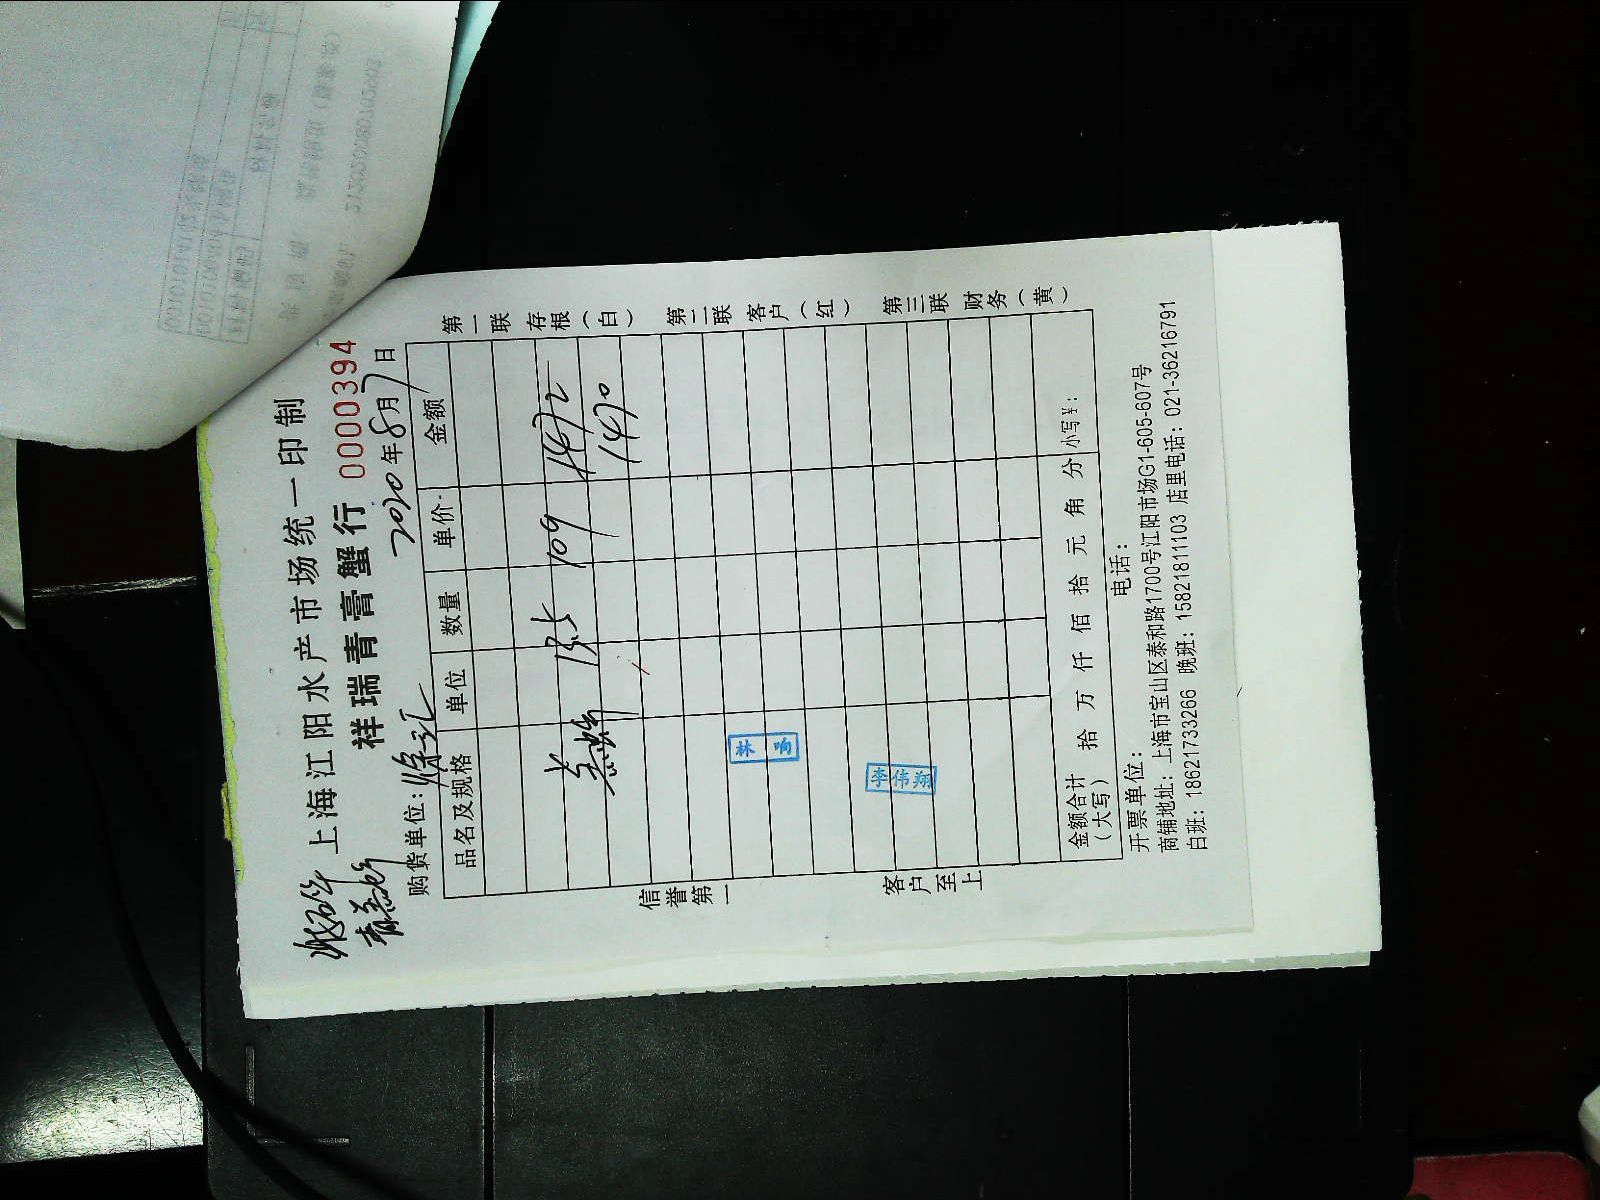 上海江阳水产市场统一印制
祥瑞青膏蟹行 0000394
购货单位:徐汇 2020年8月7日
品名及规格 单位 数量 单价 金额
13.5 109 1472
1470
林响
李伟翔
金额合计(大写) 拾 万 仟 佰 拾 元 角 分 小写¥:
开票单位: 电话:
商铺地址:上海市宝山区泰和路1700号江阳市场G1-605-607号
白班:18621733266 晚班:15821811103 店里电话:021-36216791
第一联存根(白)
第二联客户(红)
第三联财务(黄)
信誉第一
客户至上